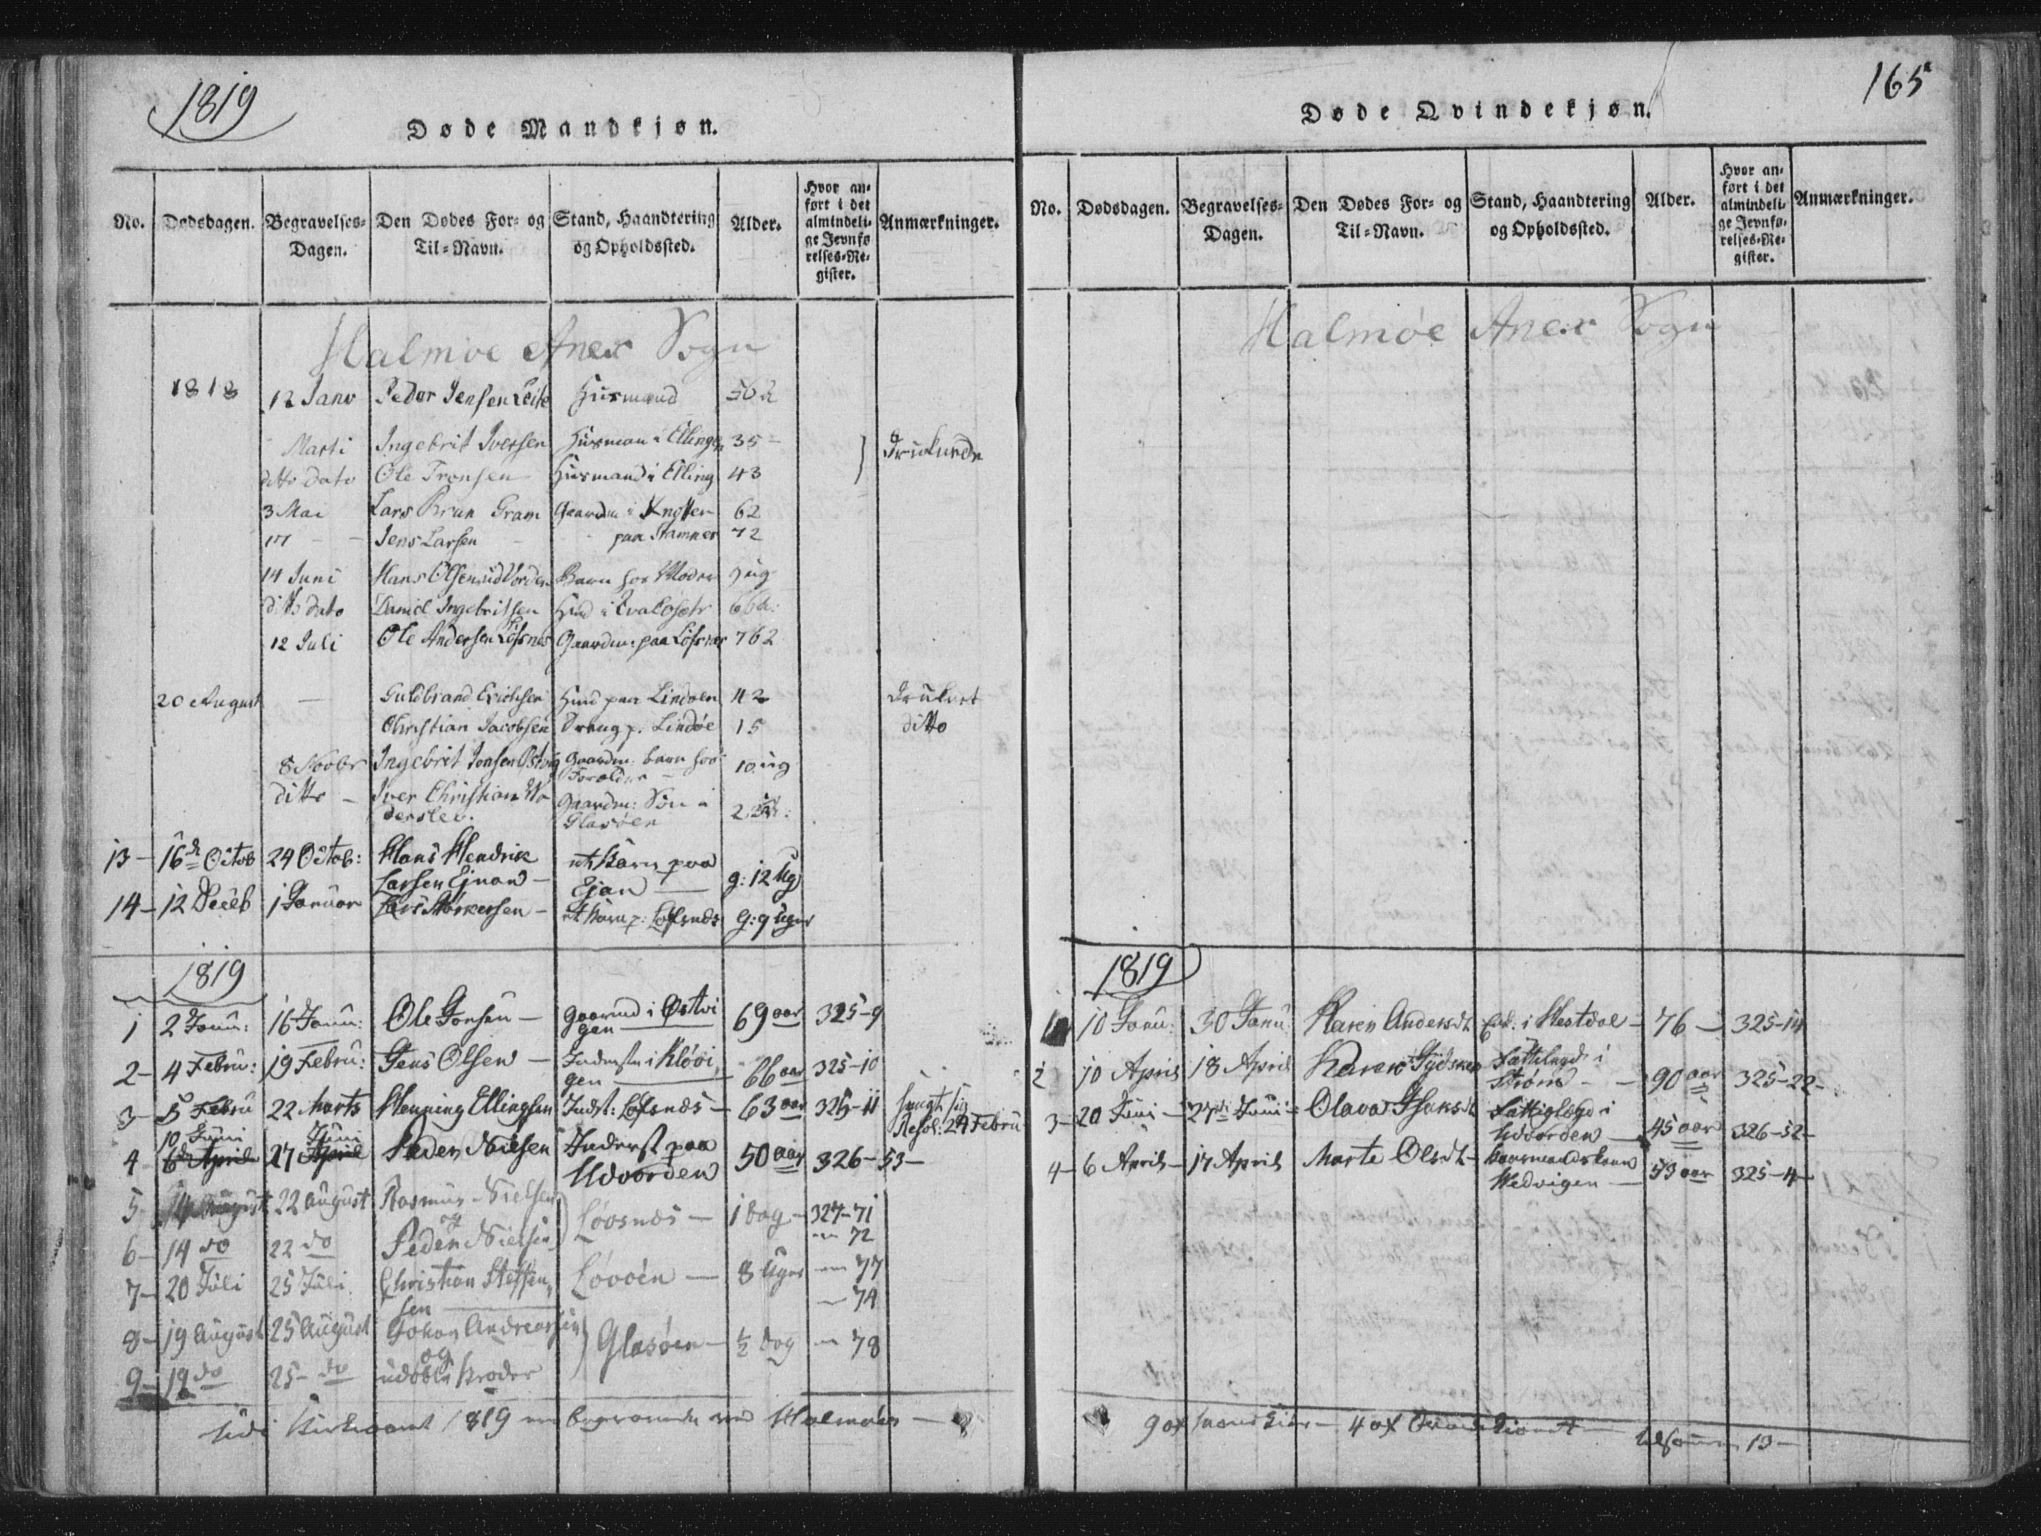 1819
Døde Mandkjøn.
No. Dødsdagen. Begravelses-Dagen. Den Dødes For- og Til-Navn. Stand, Haandtering og Opholdssted. Alder. Hvor anført i det almindelige Jevnførelses-Register. Anmærkninger.
Halmøe Anex Sogn
1818 12 Janv Peder Jensen Leite Husmand
Marti Ingebrit Iversen Husman i Ellingen 35 - Druknede
ditto dato Ole Tronsen Husmand i Elling 43
3 Mai Lars Brun Gram Gaardm i 62
17 - - Jens Larsen - paa Hamnes 72
14 Juni Hans Olsen Barn hos Moder
ditto dato Daniel Ingebritsen Huusm i
12 Juli Ole Andersen Løfsnes Gaardm: paa Løfsnes 762
20 August - Guldbrand Erichsen Huusm paa Lindøen 42 Druknet
Christian Jacobsen Dreng p. Lindøe 15 ditto
8 Novbr Ingebrit Jonsen Østvig Gaardm. barn hos Forældre - 10 ug
ditto - Iver Christian Woderslev. Gaardm: Søn i Glasøen
13 - 16de Octob 24 Octobr: Hans Hendrik Larsen Ejnan - et Barn paa Ejan - g: 12 Ug
14 - 12 Deceb 1 Januar Lars Storkersen - et Barn p: Løfsnæs g: 9 Uger
1819
1 2 Janu: 16 Janu: Ole Jonsen - Gaarmd i Østvigen 69 aar 325-9
2 - 4 Febru: 19 Febru: Jens Olsen - Inderste i Kløvigen 66 aar 325-10
3 - 5 Febru 22 Marts Henning Ellingsen Indst: Løfsnæs - 63 aar 325-11 Resol: 24 Febru
4 - 10 Juni 6de April 27 Juni April Peder Nielsen Inderst paa Udvorden 50 aar 326-53 -
5 - 14 August 22 August Rasmus Nielsen og Løvsnæs - 1 Dag - 327-71
6 - 14 do 22 do Peder Nielsen - 72
7 - 20 Juli 25 Juli Christian Steffensen Løvøen - 8 Uger - 77
- 74
8 - 19 August 25 August Johan Andreassen og Glasøen - ½ Dag - 78
9 - 19 do 25 - do udøbt Broder
Udi Kirkeaaret 1819 ere begravede ved Halmøen -
165
Døde Qvindekjøn.
No. Dødsdagen. Begravelses-Dagen. Den Dødes For- og Til-Navn. Stand, Haandtering og Opholdssted. Alder. Hvor anført i det almindelige Jevnførelses-Register. Anmærkninger.
Halmøe Anex Sogn
1819
1 10 Janu: 30 Janu: Karen Andersdt. Enk: i Hestdal - 76 - 325-14
2 10 April 18 April Karen Fattiglægd i Strøm - 90 aar 325-22 -
3 - 20 Juni - 27de Juni - Olava Isaksdt Fattiglægd i Udvorden - 45 aar 326-52 -
4 - 6 April - 17 April Marte Olsdt - Gaarmandskone Hedvigen - 53 aar 325-4 -
9 af Mandkiøn - 4 af Qvindekiønet - tilsammen 13 -